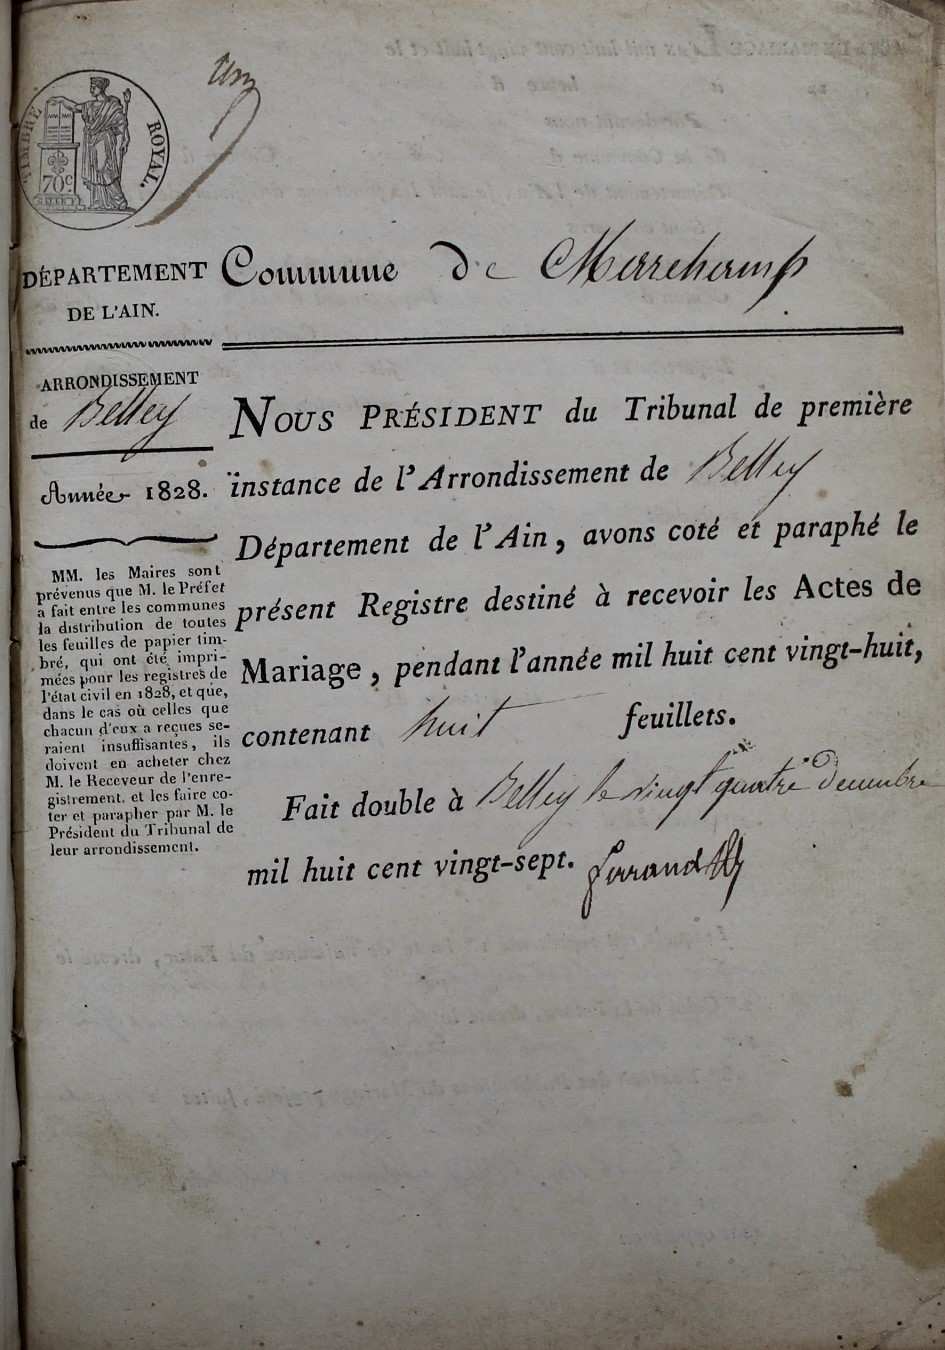 TIMBRE ROYAL.
70c
un
DÉPARTEMENT
DE L'AIN.
Commune de Marchamp
ARRONDISSEMENT
de Belley
Année 1828.
MM. les Maires sont
prévenus que M. le Préfet
a fait entre les communes
la distribution de toutes
les feuilles de papier tim-
bré, qui ont été impri-
mées pour les registres de
l'état civil en 1828, et que,
dans le cas où celles que
chacun d'eux a reçues se-
raient insuffisantes, ils
doivent en acheter chez
M. le Receveur de l'enre-
gistrement, et les faire co-
ter et parapher par M. le
Président du Tribunal de
leur arrondissement.
NOUS PRÉSIDENT du Tribunal de première
ïnstance de l'Arrondissement de Belley
Département de l'Ain, avons coté et paraphé le
présent Registre destiné à recevoir les Actes de
Mariage, pendant l'année mil huit cent vingt-huit,
contenant huit feuillets.
Fait double à Belley le vingt quatre Decembre
mil huit cent vingt-sept.